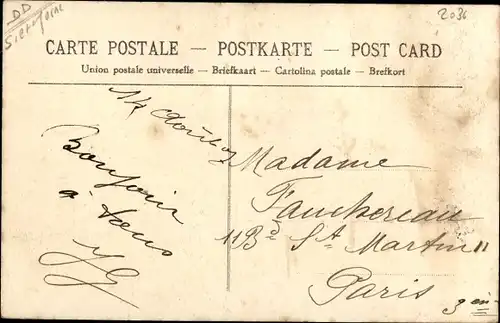 DD
2036
CARTE POSTALE — POSTKARTE — POST CARD
Union postale universelle — Briefkaart — Cartolina postale — Brefkort
14
Bonjour
à tous
Madame
Fauchereau
11 Bd St Martin 11
Paris
3 em